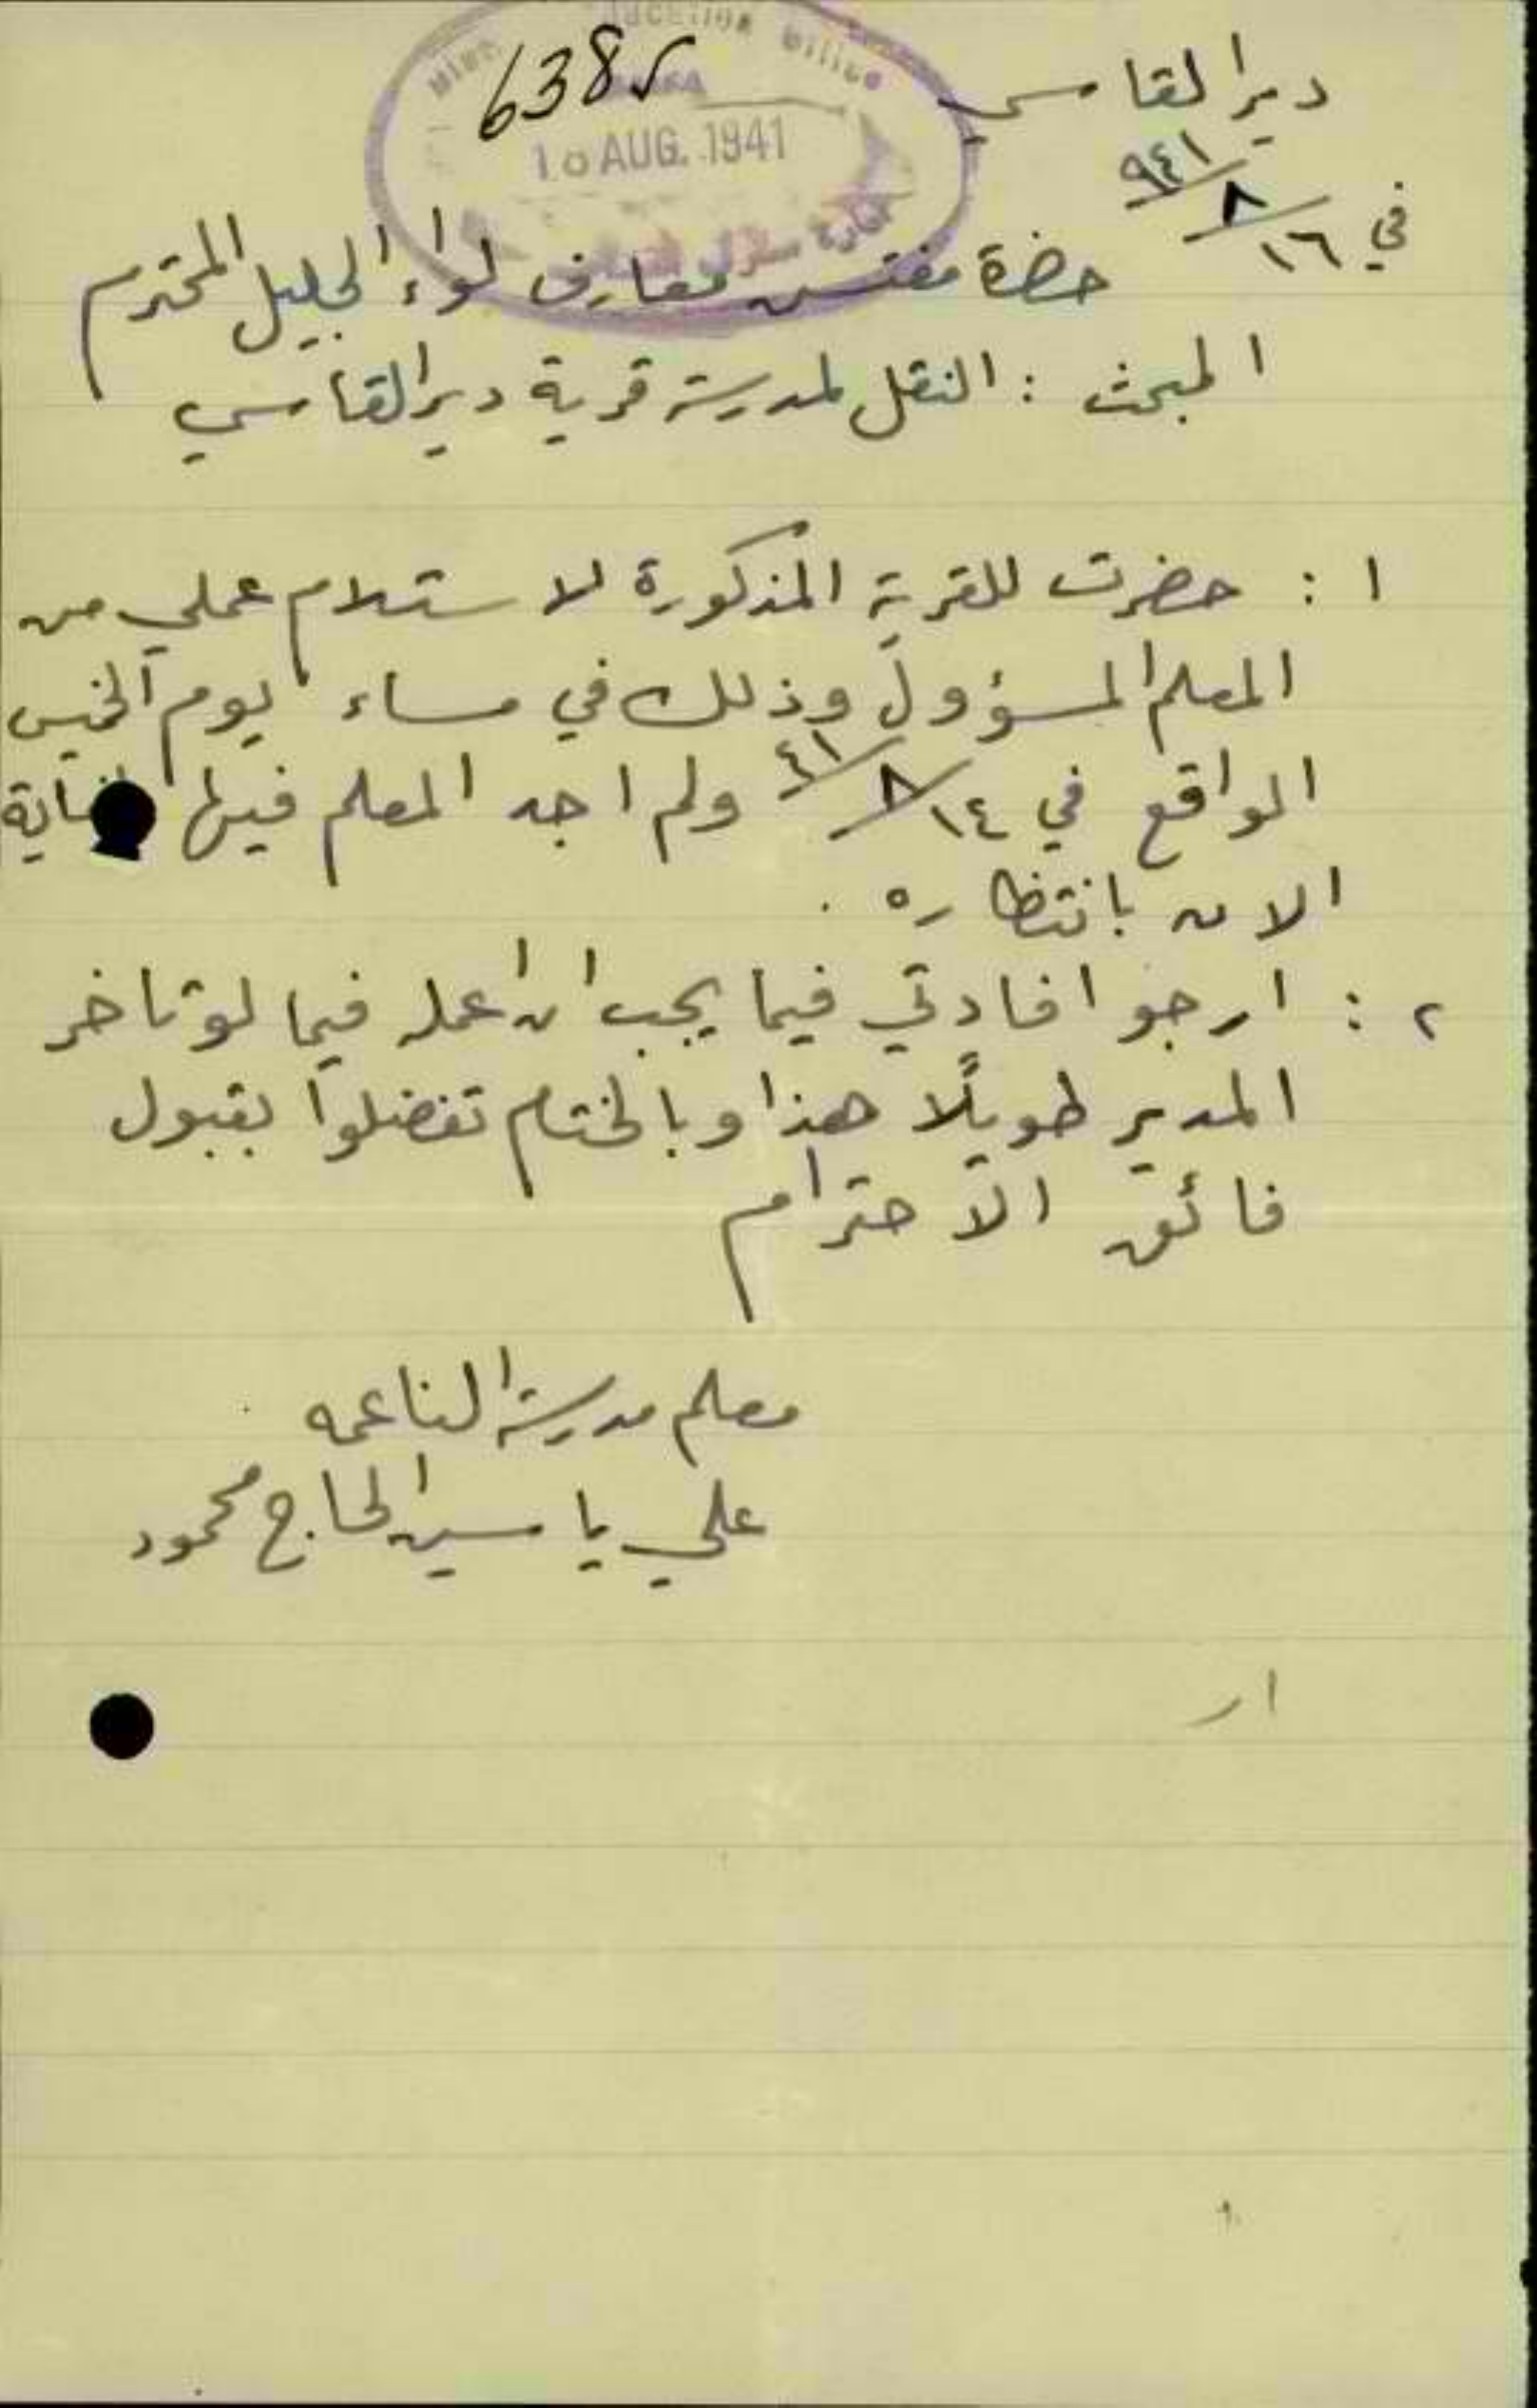 دير القاسي
في ١٦/٨/٩٤١
6385
Education Office
10 AUG. 1941
حضرة مفتش معارف لواء الجليل المحترم
المبحث : النقل لمدرسة قرية دير القاسي
١ : حضرت للقرية المذكورة لاستلام عملي من
المعلم المسؤول وذلك في مساء يوم الخميس
الواقع في ١٤/٨/٤١ ولم اجد المعلم فيها لغاية
الان بانتظاره .
٢ : ارجو افادتي فيما يجب ان اعمله فيما لو تاخر
المدير طويلًا هذا وبالختام تفضلوا بقبول
فائق الاحترام
معلم مدرسة الناعمه
علي ياسين الحاج محمود
ار